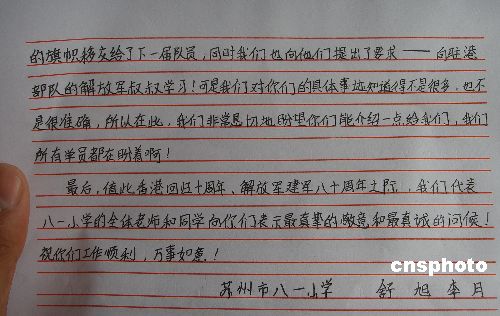 的旗帜移交给了下一届队员，同时我们也向他们提出了要求——向驻港
部队的解放军叔叔学习！可是我们对你们的具体事迹知道得不是很多，也不
是很准确，所以在此，我们非常恳切地盼望你们能介绍一点给我们，我们
所有学员都在盼着啊！
最后，值此香港回归十周年、解放军建军八十周年之际，我们代表
八一小学的全体老师和同学向你们表示最真挚的敬意和最真诚的问候！
祝你们工作顺利，万事如意！
cnsphoto
苏州市八一小学 舒旭 李月